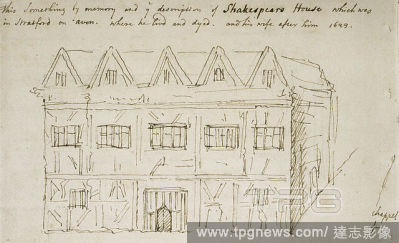 This Something by memory and ye description of Shakespears House which was
in Stratford on avon. where he livd and dyed. and his wife after him 1623.
Chappel
TPG
www.tpgnews.com/ 達志影像